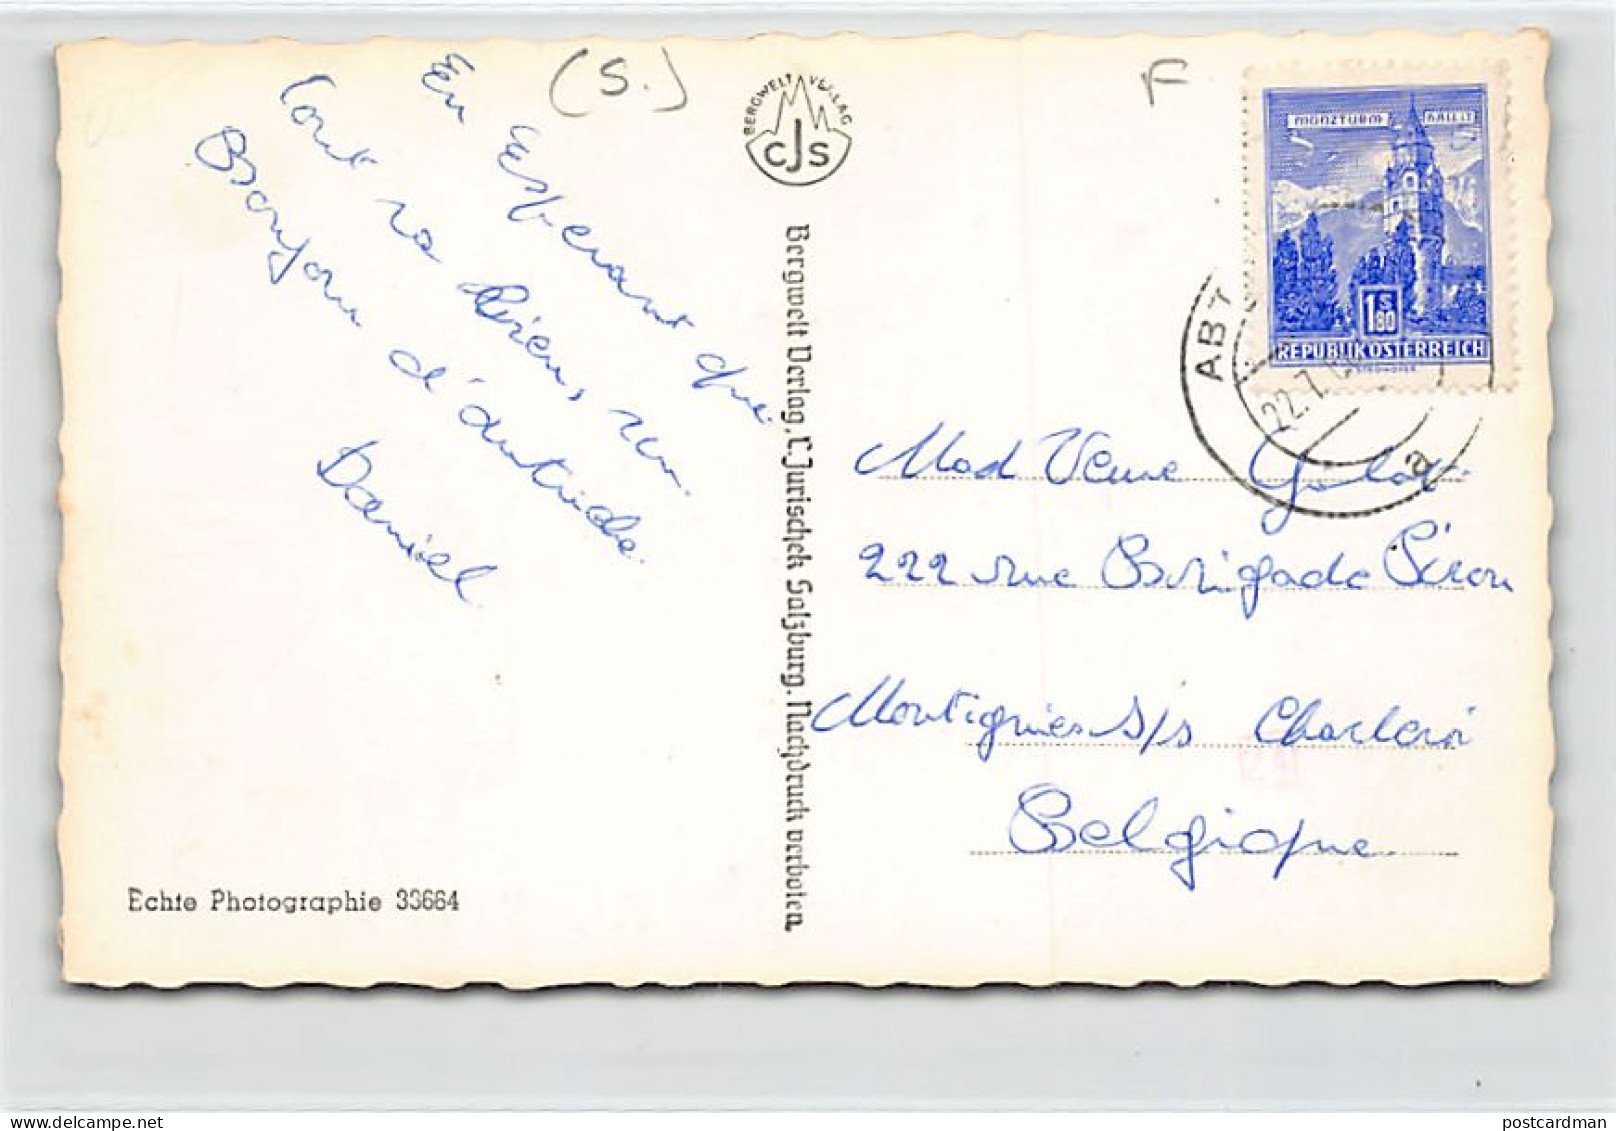 (S.)
En Esperant que
tout va bien, un
Bonjour d'Autriche
Daniel
Echte Photographie 33664
BERGWELT VERLAG
CJS
Bergwelt Verlag, C. Jurischek Salzburg. Nachdruck verboten
F
MÜNZTURM HALL I T
1 S 80
REPUBLIK ÖSTERREICH
ABT
22.7.
a
Mad Veuve
222 rue Brigade Piron
Montignies s/s Charleroi
Belgique
postcardman